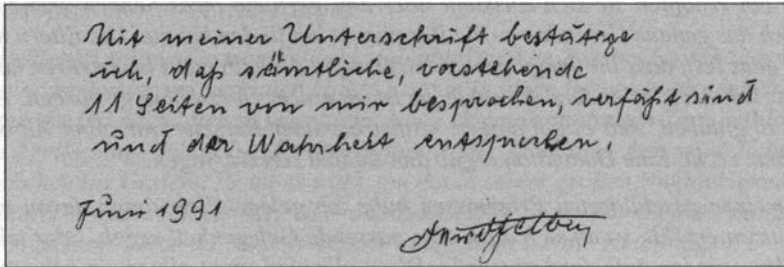 Mit meiner Unterschrift bestätige
ich, daß sämtliche, vorstehende
11 Seiten von mir besprochen, verfaßt sind
und der Wahrheit entsprechen.
Juni 1991